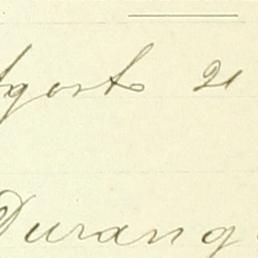 Agosto 21
Durang